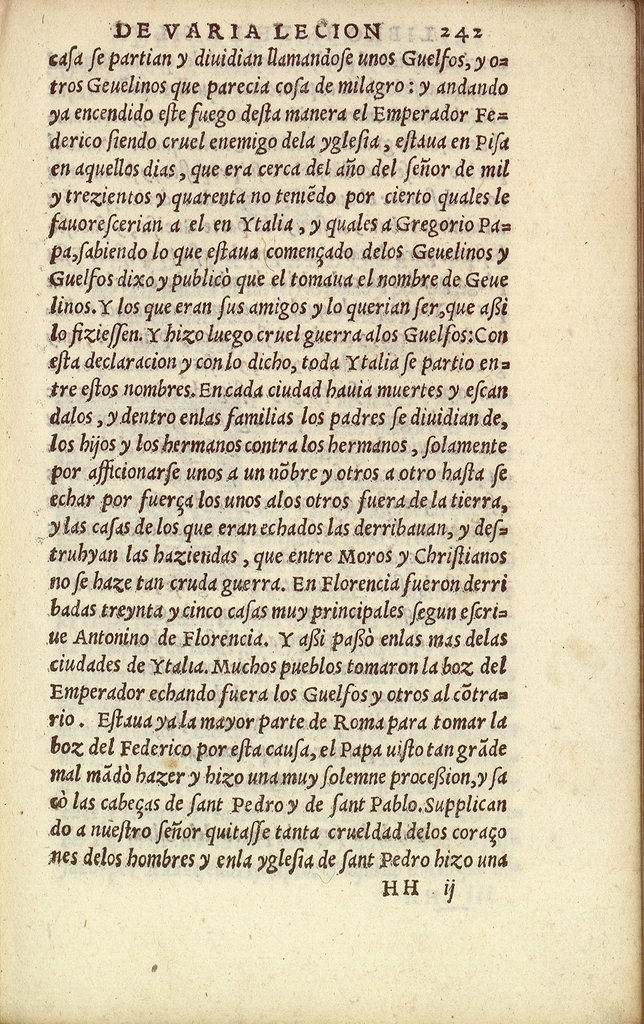 DE VARIA LECION 242
caſa ſe partian y diuidian llamandoſe unos Guelfos, y o=
tros Geuelinos que parecia coſa de milagro: y andando
ya encendido eſte fuego deſta manera el Emperador Fe=
derico ſiendo cruel enemigo dela ygleſia, eſtaua en Piſa
en aquellos dias, que era cerca del año del ſeñor de mil
y trezientos y quarenta no teniẽdo por cierto quales le
fauoreſcerian a el en Ytalia, y quales a Gregorio Pa=
pa, ſabiendo lo que eſtaua començado delos Geuelinos y
Guelfos dixo y publicò que el tomaua el nombre de Geue
linos. Y los que eran ſus amigos y lo querian ſer, que aßi
lo fizieſſen. Y hizo luego cruel guerra alos Guelfos: Con
eſta declaracion y con lo dicho, toda Ytalia ſe partio en=
tre eſtos nombres. En cada ciudad hauia muertes y eſcan
dalos, y dentro enlas familias los padres ſe diuidian de,
los hijos y los hermanos contra los hermanos, ſolamente
por afficionarſe unos a un nõbre y otros a otro haſta ſe
echar por fuerça los unos alos otros fuera de la tierra,
y las caſas de los que eran echados las derribauan, y deſ=
truhyan las haziendas, que entre Moros y Chriſtianos
no ſe haze tan cruda guerra. En Florencia fueron derri
badas treynta y cinco caſas muy principales ſegun eſcri=
ue Antonino de Florencia. Y aßi paßò enlas mas delas
ciudades de Ytalia. Muchos pueblos tomaron la boz del
Emperador echando fuera los Guelfos y otros al cõtra=
rio. Eſtaua ya la mayor parte de Roma para tomar la
boz del Federico por eſta cauſa, el Papa uiſto tan grãde
mal mãdò hazer y hizo una muy ſolemne proceßion, y ſa
cò las cabeças de ſant Pedro y de ſant Pablo. Supplican
do a nueſtro ſeñor quitaſſe tanta crueldad delos coraço
nes delos hombres y enla ygleſia de ſant Pedro hizo una
HH ij